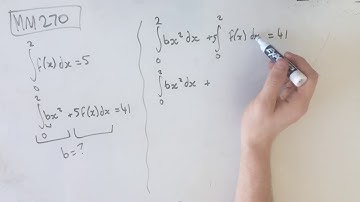 MM270
∫₀² f(x) dx = 5
∫₀² bx² + 5f(x) dx = 41
b = ?
∫₀² bx² dx + 5∫₀² f(x) dx = 41
∫₀² bx² dx +